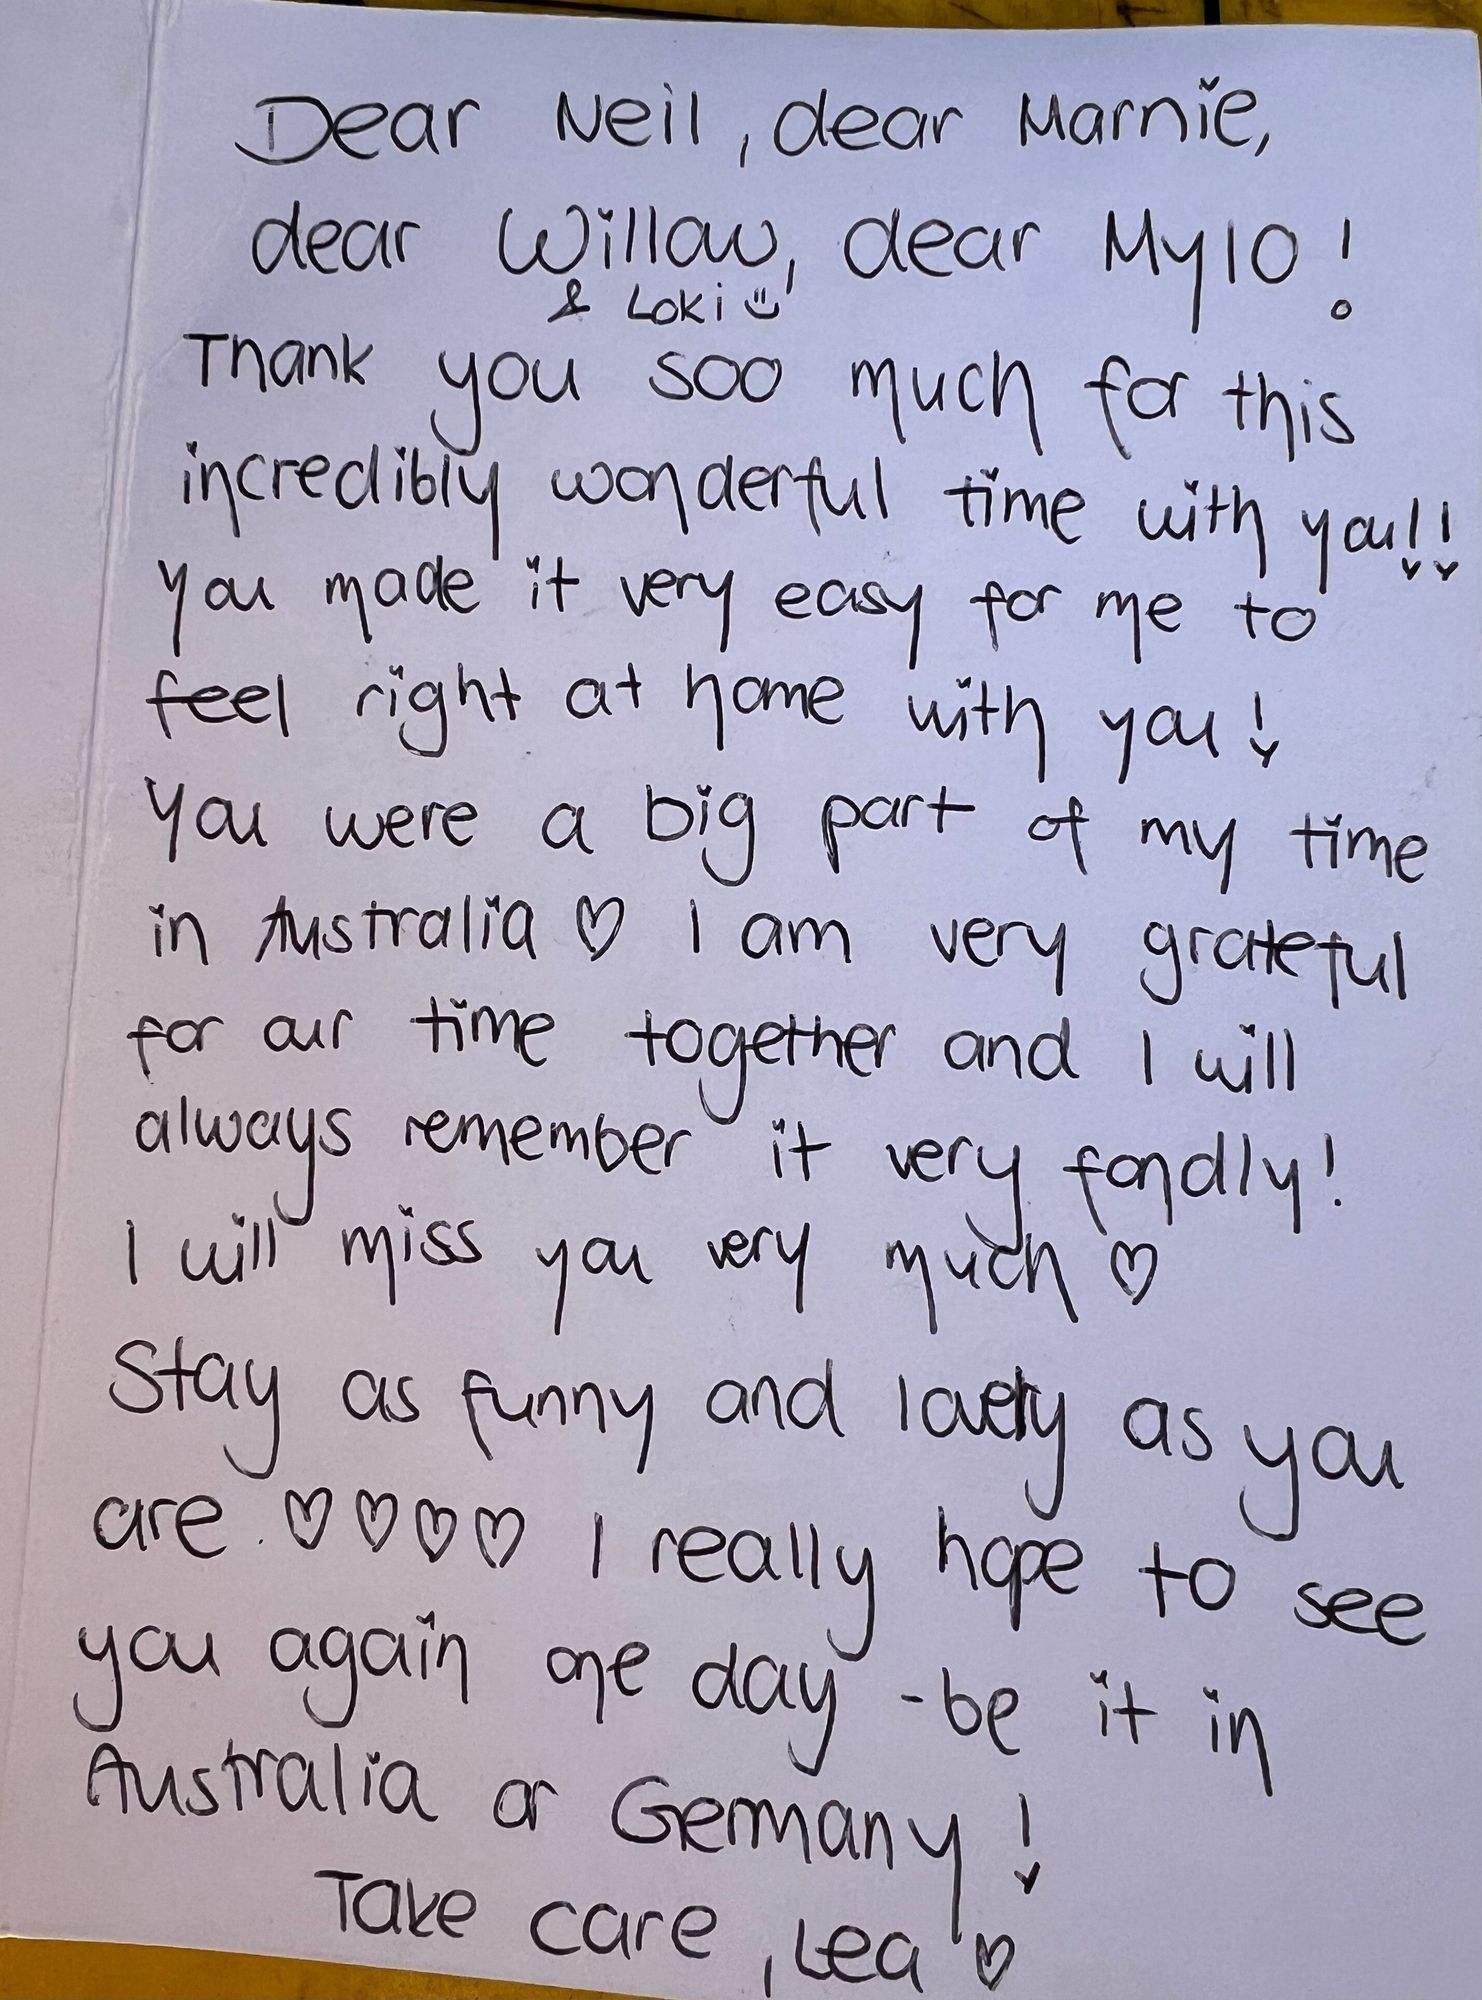 Dear Neil, dear Marnie,
dear Willow, dear Mylo!
& Loki ☺
Thank you soo much for this
incredibly wonderful time with you!!
You made it very easy for me to
feel right at home with you!
You were a big part of my time
in Australia ♡ I am very grateful
for our time together and I will
always remember it very fondly!
I will miss you very much ♡
Stay as funny and lovely as you
are. ♡♡♡♡ I really hope to see
you again one day - be it in
Australia or Germany!
Take care, Lea ♡